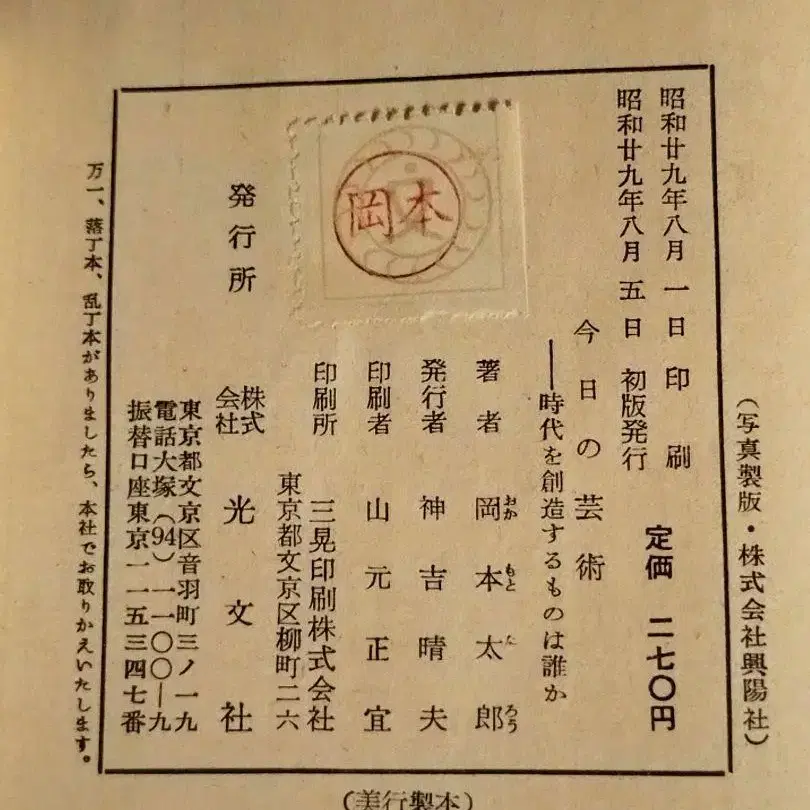 (写真製版・株式会社興陽社)
昭和廿九年八月一日印刷
昭和廿九年八月五日初版発行
定価 二七〇円
今日の芸術
――時代を創造するものは誰か
著者 岡本太郎
おか もと た ろう
発行者 神吉晴夫
印刷者 山元正宜
印刷所 三晃印刷株式会社
東京都文京区柳町二六
岡本
発行所 株式会社 光文社
東京都文京区音羽町三ノ一九
電話大塚(94)一一〇〇―九
振替口座東京一一五三四七番
万一、落丁本、乱丁本がありましたら、本社でお取りかえいたします。
(美行製本)